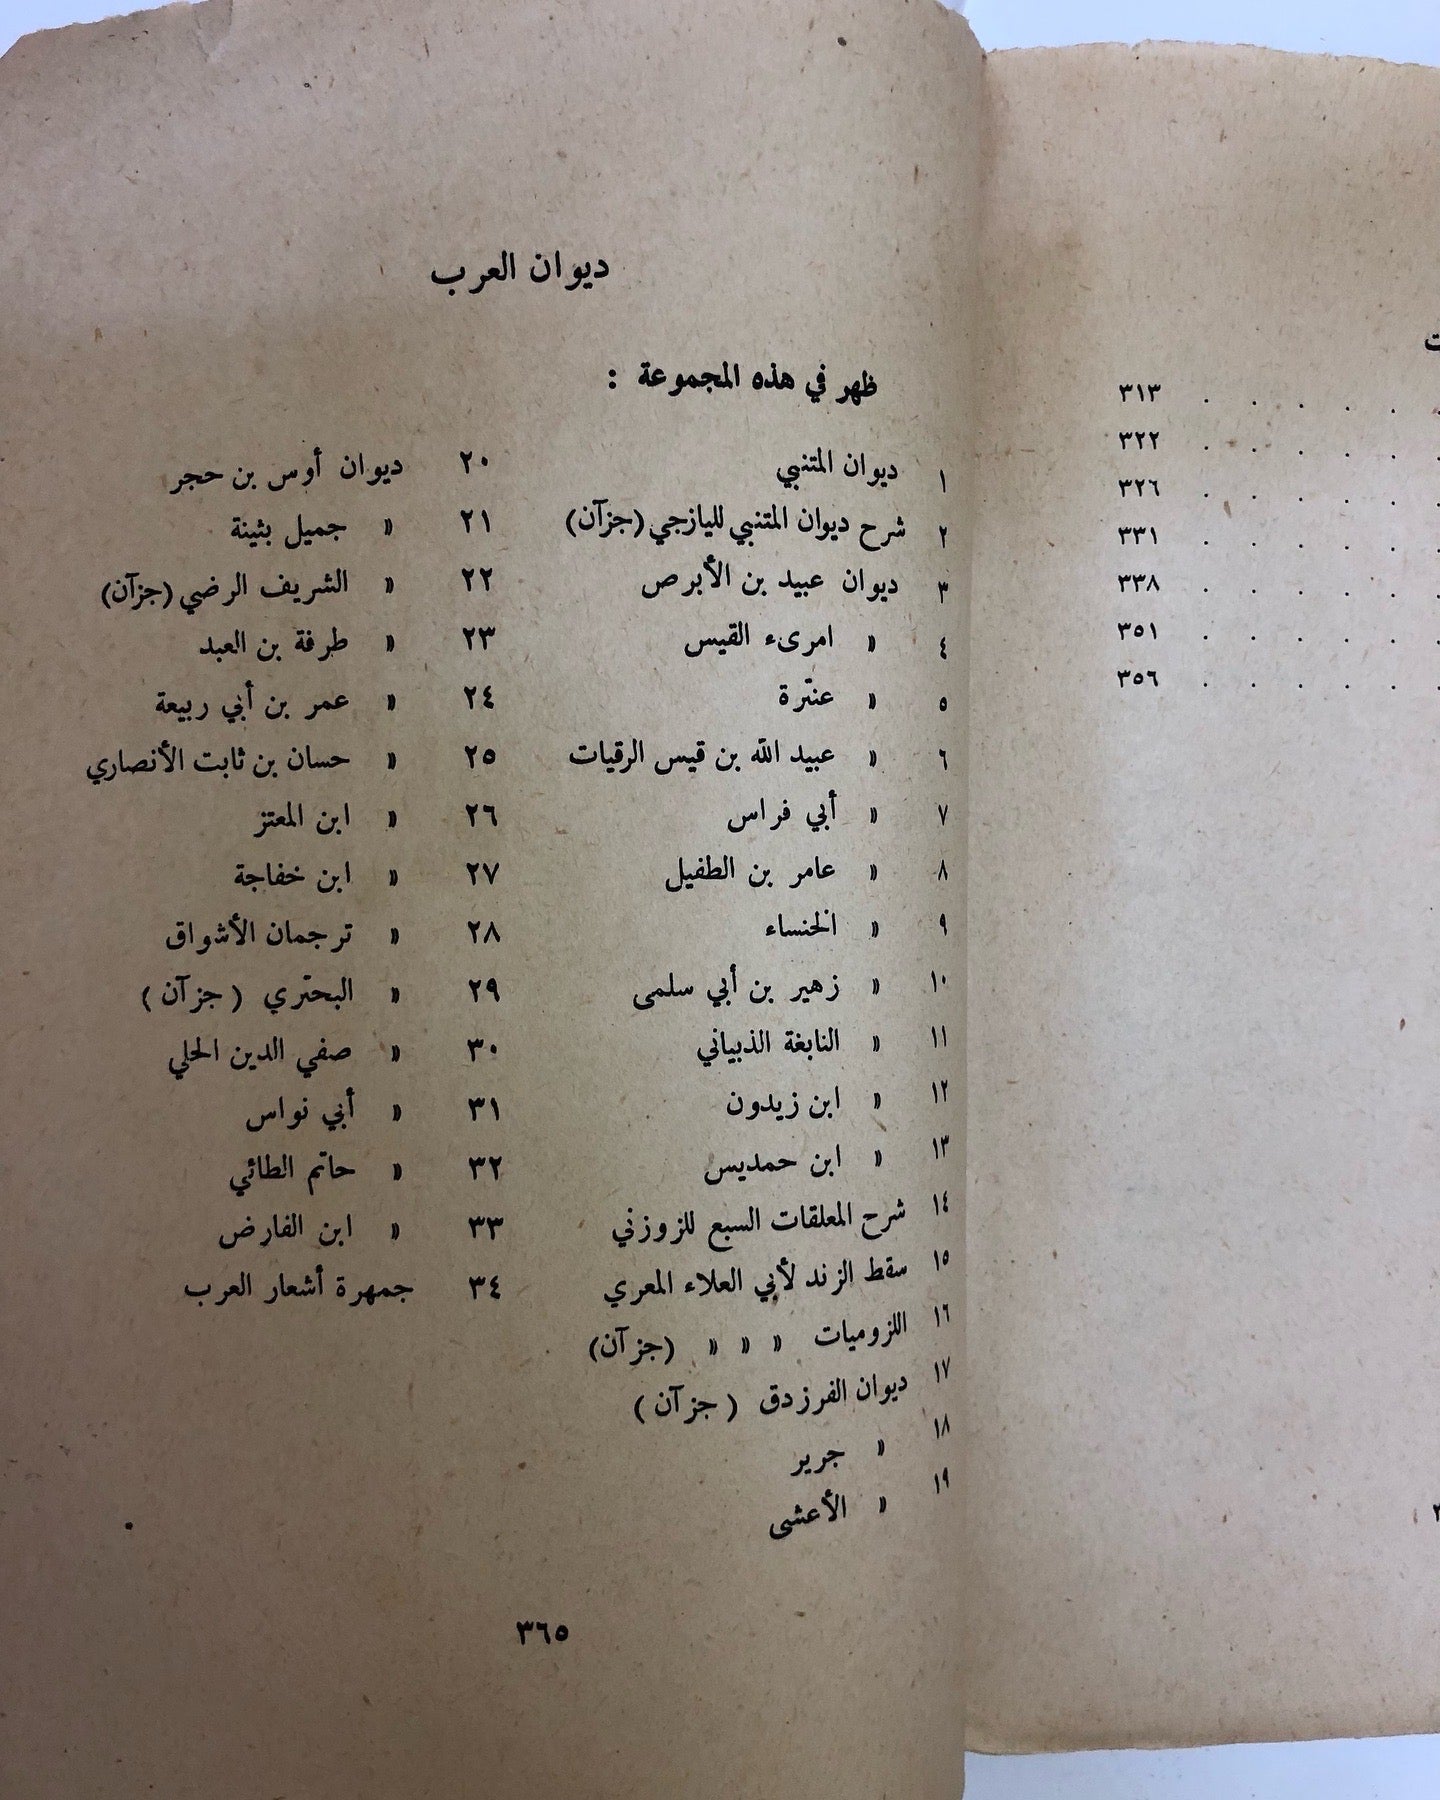 ديوان العرب
ظهر في هذه المجموعة :
١ ديوان المتنبي
٢ شرح ديوان المتنبي لليازجي (جزآن)
٣ ديوان عبيد بن الأبرص
٤ » امرىء القيس
٥ » عنترة
٦ » عبيد الله بن قيس الرقيات
٧ » أبي فراس
٨ » عامر بن الطفيل
٩ » الخنساء
١٠ » زهير بن أبي سلمى
١١ » النابغة الذبياني
١٢ » ابن زيدون
١٣ » ابن حمديس
١٤ شرح المعلقات السبع للزوزني
١٥ سقط الزند لأبي العلاء المعري
١٦ اللزوميات » » » (جزآن)
١٧ ديوان الفرزدق ( جزآن )
١٨ » جرير
١٩ » الأعشى
٢٠ ديوان أوس بن حجر
٢١ » جميل بثينة
٢٢ » الشريف الرضي (جزآن)
٢٣ » طرفة بن العبد
٢٤ » عمر بن أبي ربيعة
٢٥ » حسان بن ثابت الأنصاري
٢٦ » ابن المعتز
٢٧ » ابن خفاجة
٢٨ » ترجمان الأشواق
٢٩ » البحتري ( جزآن )
٣٠ » صفي الدين الحلي
٣١ » أبي نواس
٣٢ » حاتم الطائي
٣٣ » ابن الفارض
٣٤ جمهرة أشعار العرب
٣٦٥
. . . . . . ٣١٣
. . . . . . ٣٢٢
. . . . . . ٣٢٦
. . . . . . ٣٣١
. . . . . . ٣٣٨
. . . . . . ٣٥١
. . . . . . ٣٥٦